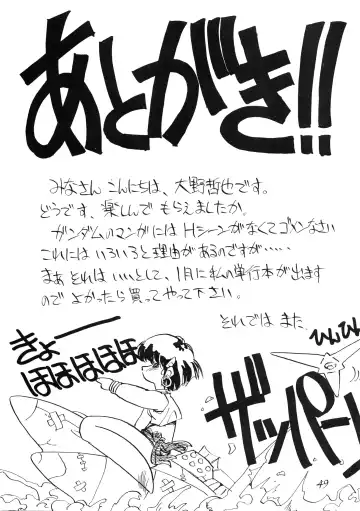 あとがき!!
みなさん こんにちは、大野哲也です。
どうです、楽しんで もらえましたか。
ガンダムのマンガには Hシーンがなくてゴメンなさい
これには いろいろと理由があるのですが・・・・・
まあ それは いいとして、1月に私の単行本が出ます
ので よかったら買ってやって下さい。
それでは また。
きょーー
ほほほほほ
ひんひん
ザッパーン
49